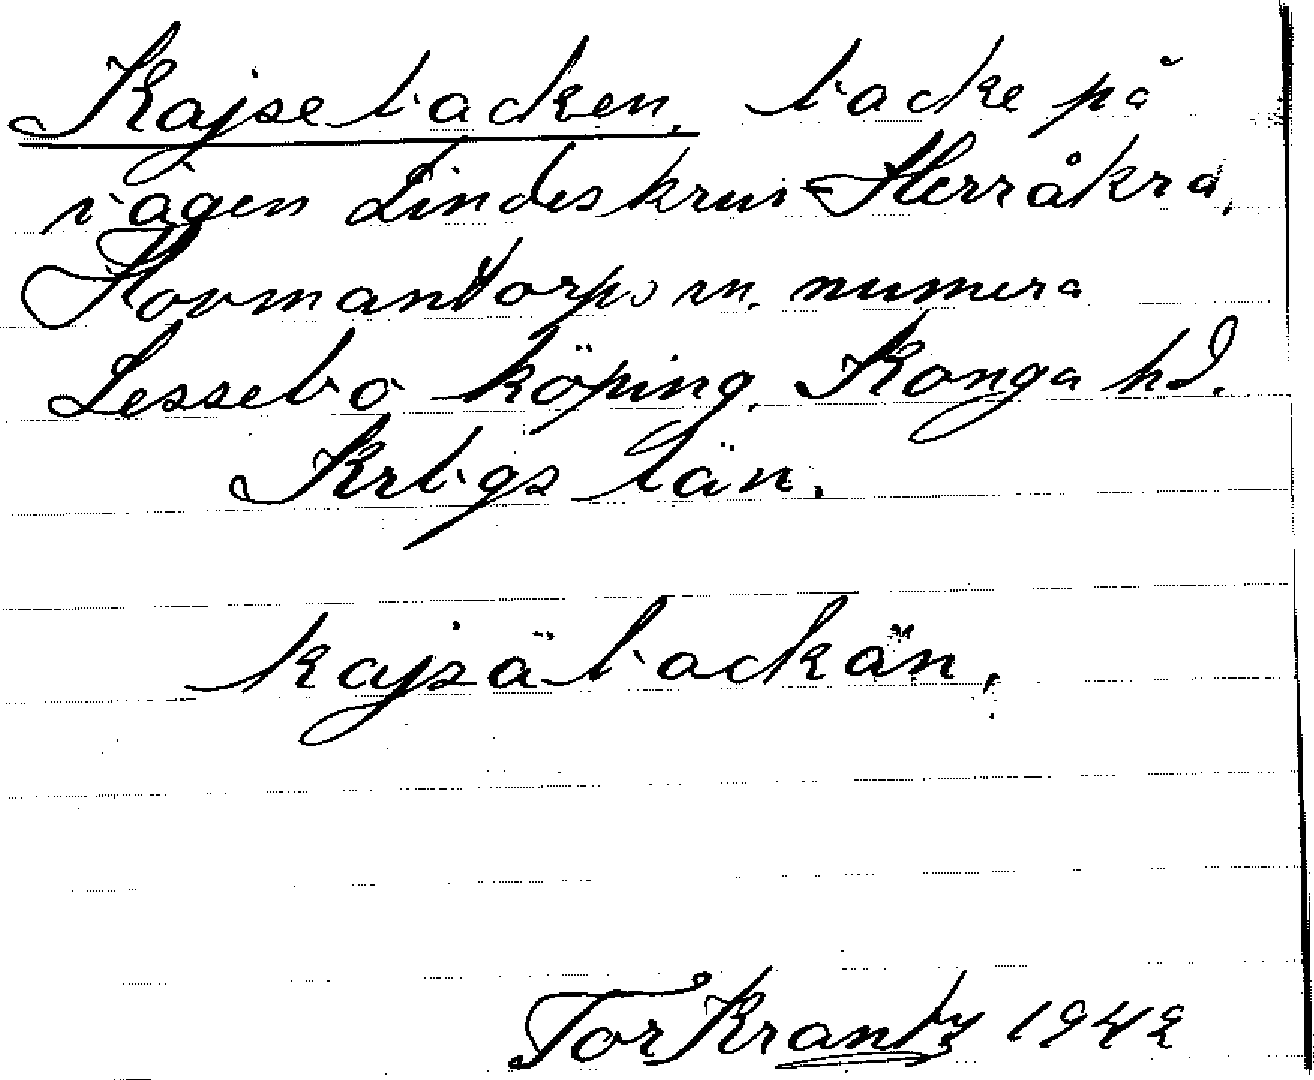 Kajsebacken, backe på
vägen Lindeskruv-Herråkra,
Hovmantorps sn. numera
Lessebo köping, Konga hd.
Krbgs län.
kajsäbackän,
Tor Krantz 1942